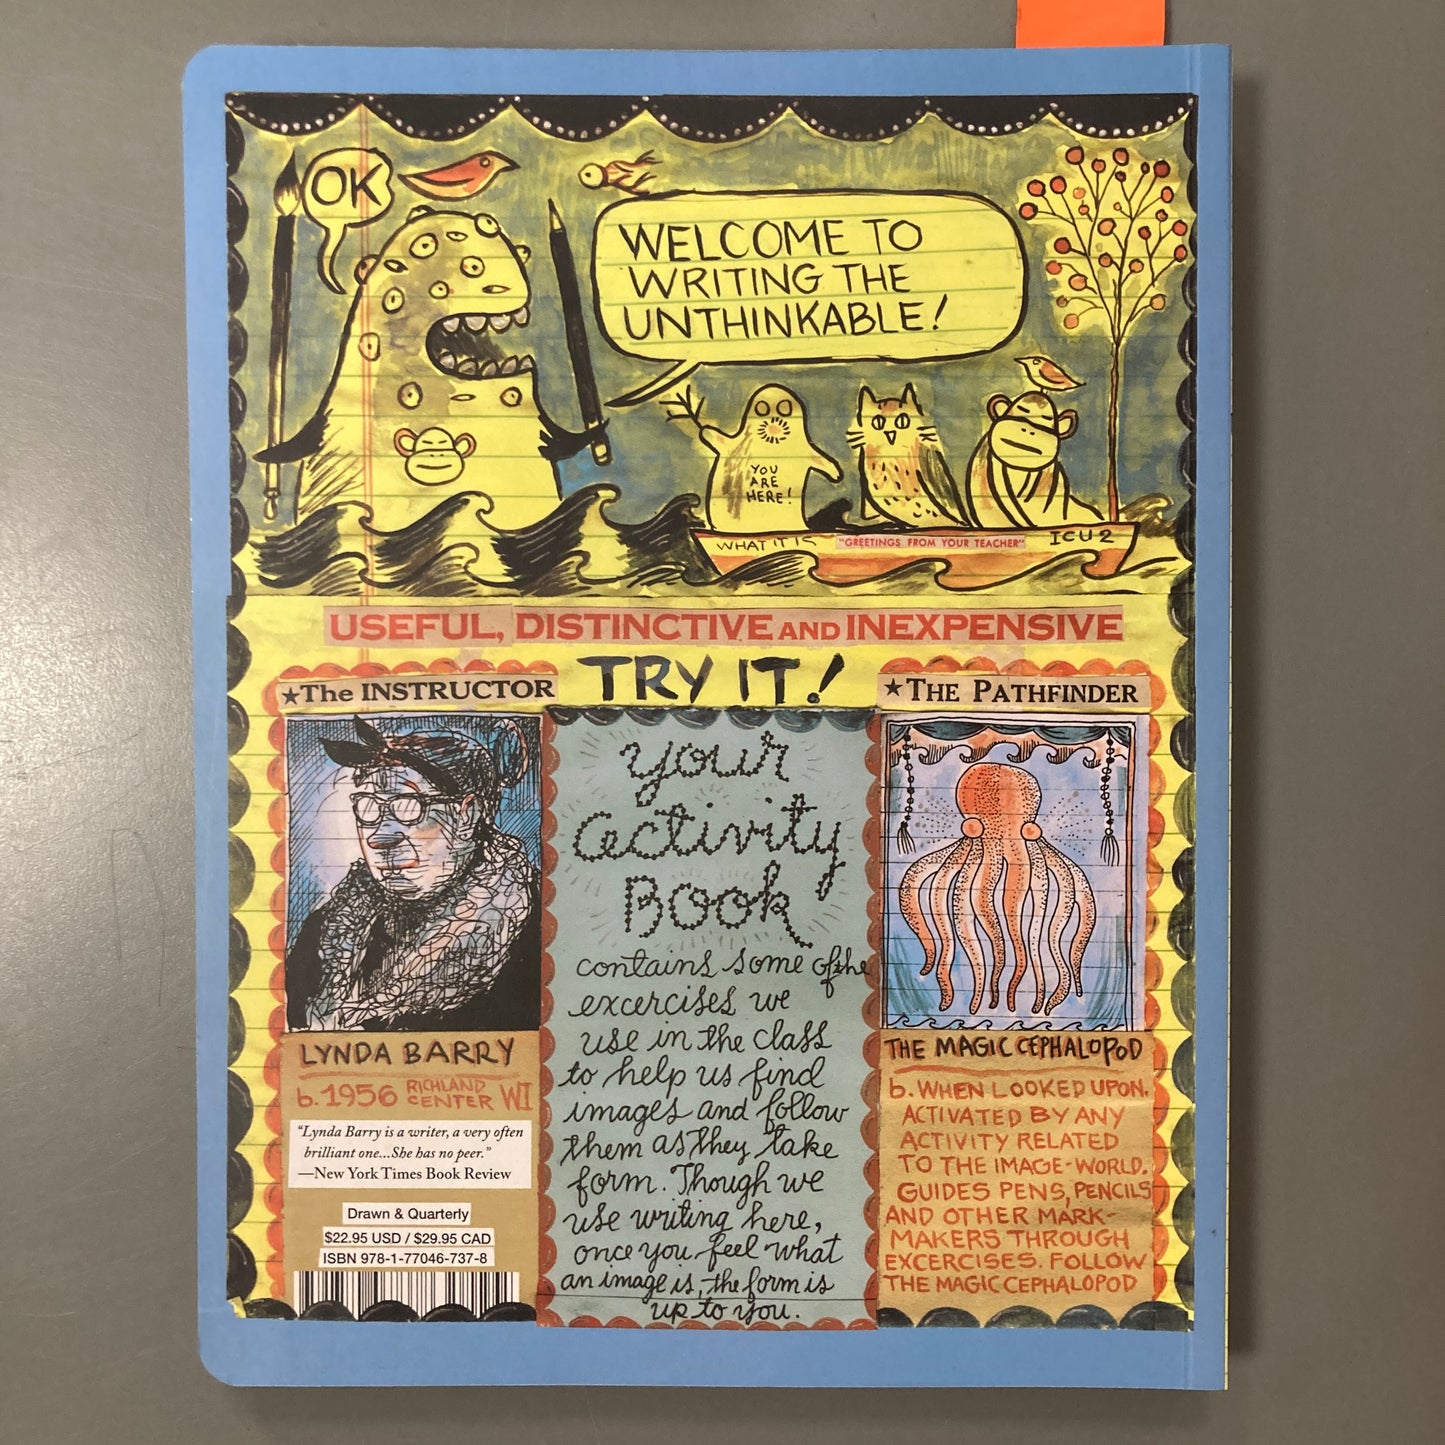 OK
WELCOME TO
WRITING THE
UNTHINKABLE!
YOU
ARE
HERE!
WHAT IT IS
"GREETINGS FROM YOUR TEACHER"
ICU2
USEFUL, DISTINCTIVE AND INEXPENSIVE
TRY IT!
★The INSTRUCTOR
LYNDA BARRY
b. 1956 RICHLAND CENTER WI
"Lynda Barry is a writer, a very often
brilliant one...She has no peer."
—New York Times Book Review
Drawn & Quarterly
$22.95 USD / $29.95 CAD
ISBN 978-1-77046-737-8
your
activity
Book
contains some of the
excercises we
use in the class
to help us find
images and follow
them as they take
form. Though we
use writing here,
once you feel what
an image is, the form is
up to you.
★THE PATHFINDER
THE MAGIC CEPHALOPOD
b. WHEN LOOKED UPON.
ACTIVATED BY ANY
ACTIVITY RELATED
TO THE IMAGE-WORLD.
GUIDES PENS, PENCILS
AND OTHER MARK-
MAKERS THROUGH
EXCERCISES. FOLLOW
THE MAGIC CEPHALOPOD